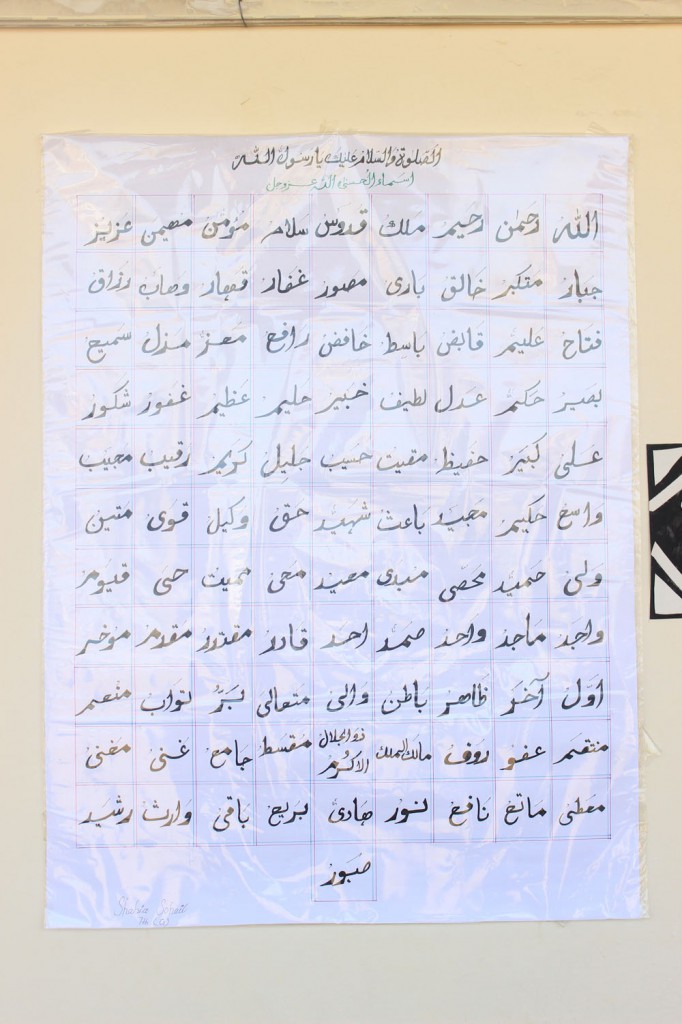 الصلوة والسلام عليك يا رسول الله
اسماء الحسنى الله عزوجل
الله رحمن رحيم ملك قدوس سلام مؤمن مهيمن عزيز
جبار متكبر خالق بارى مصور غفار قهار وهاب رزاق
فتاح عليم قابض باسط خافض رافع معز مزل سميع
بصير حكم عدل لطيف خبير حليم عظيم غفور شكور
على كبير حفيظ مقيت حسيب جليل كريم رقيب مجيب
واسع حكيم مجيد باعث شهيد حق وكيل قوى متين
ولى حميد محصى مبدى معيد محى مميت حى قيوم
واجد ماجد واحد صمد احد قادر مقتدر مقدم موخر
اول آخر ظاهر باطن والى متعالى بر تواب منعم
منتقم عفو روف مالك الملك ذوالجلال الاكرم مقسط جامع غنى مغنى
معطى مانع نافع نور هادى بديع باقى وارث رشيد
صبور